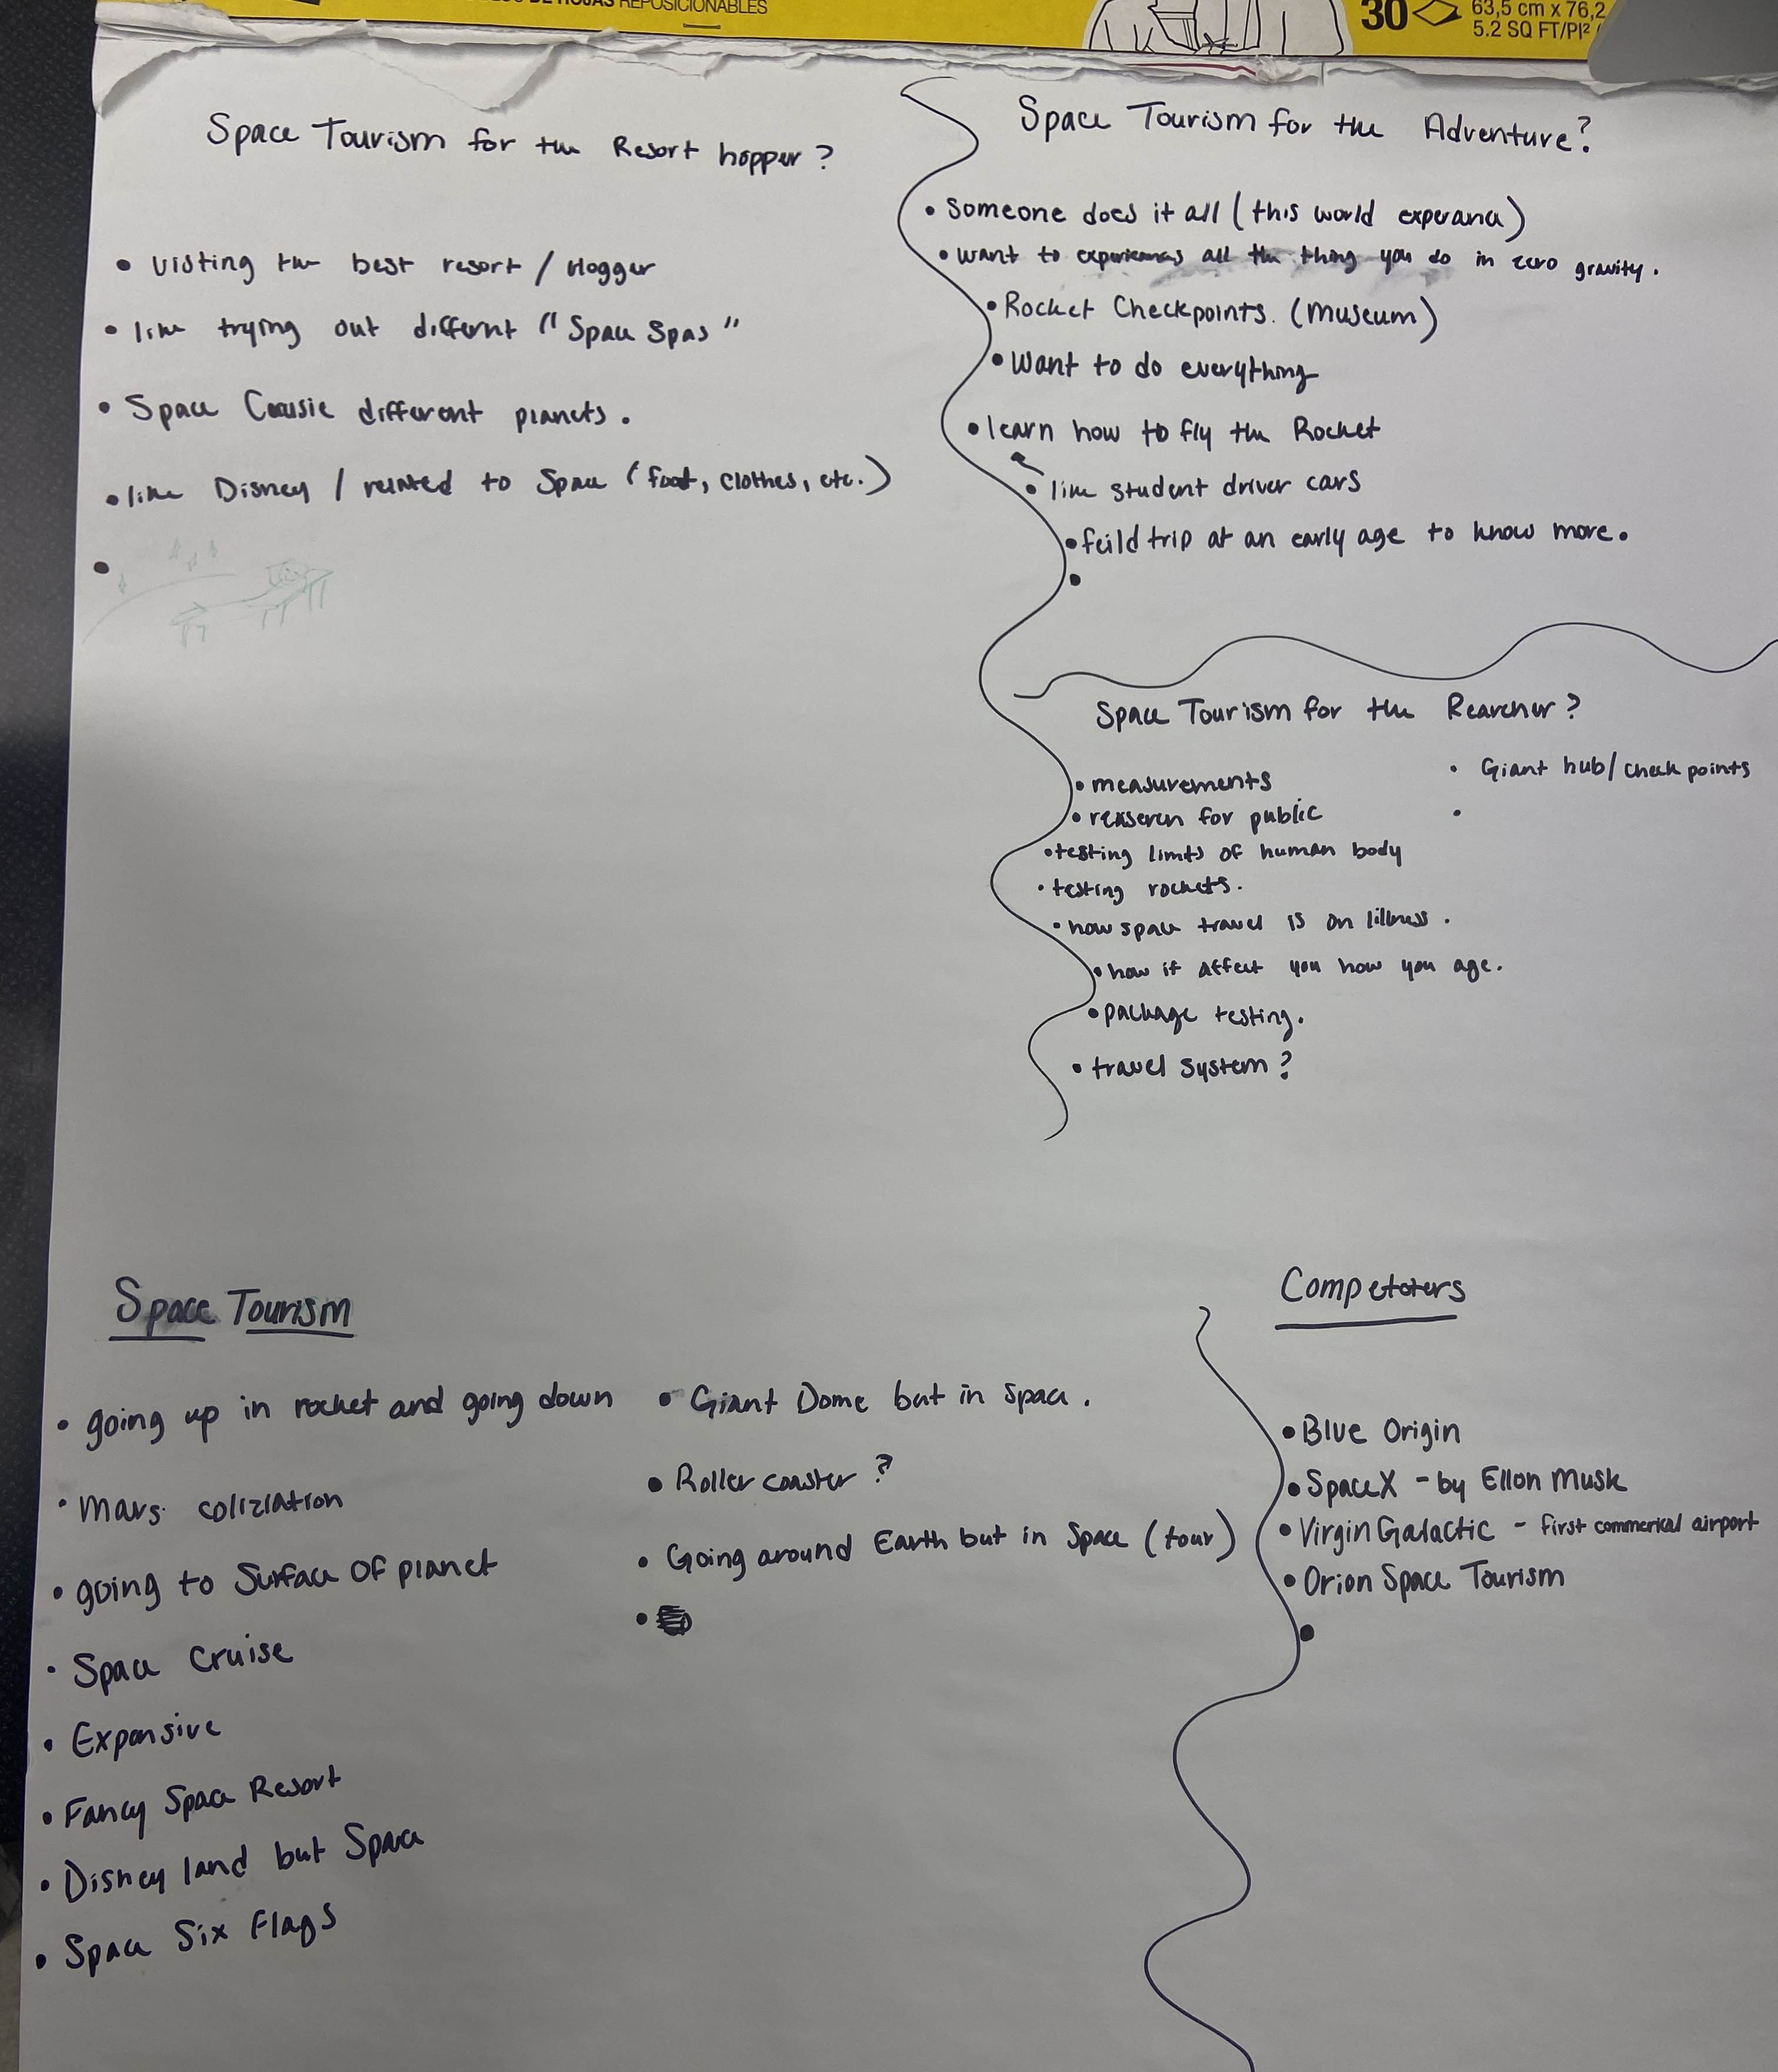 DE HOJAS REPOSICIONABLES
30
63,5 cm x 76,2
5.2 SQ FT/PI²
Space Tourism for the Resort hopper?
• Visting the best resort / vlogger
• like trying out differnt "Space Spas"
• Space different planets.
• like Disney / related to Space (food, clothes, etc.)
•
Space Tourism for the Adventure?
• Someone does it all (this world)
• want to all the thing you do in zero gravity.
• Rocket Checkpoints. (museum)
• Want to do everything
• learn how to fly the Rocket
• like student driver cars
• feild trip at an early age to know more.
•
Space Tourism for the Rearcher?
• measurements
• for public
• testing limts of human body
• testing rockets.
• how space travel is on
• how it affect you how you age.
• package testing.
• travel system?
• Giant hub/check points
•
Space Tourism
• going up in rocket and going down
• Mars
• going to Surface of planet
• Space Cruise
• Expansive
• Fancy Space Resort
• Disney land but Space
• Space Six Flags
• Giant Dome but in Space.
• Roller coaster?
• Going around Earth but in Space (tour)
•
Competoters
• Blue Origin
• SpaceX - by Ellon Musk
• Virgin Galactic - first commerical airport
• Orion Space Tourism
•